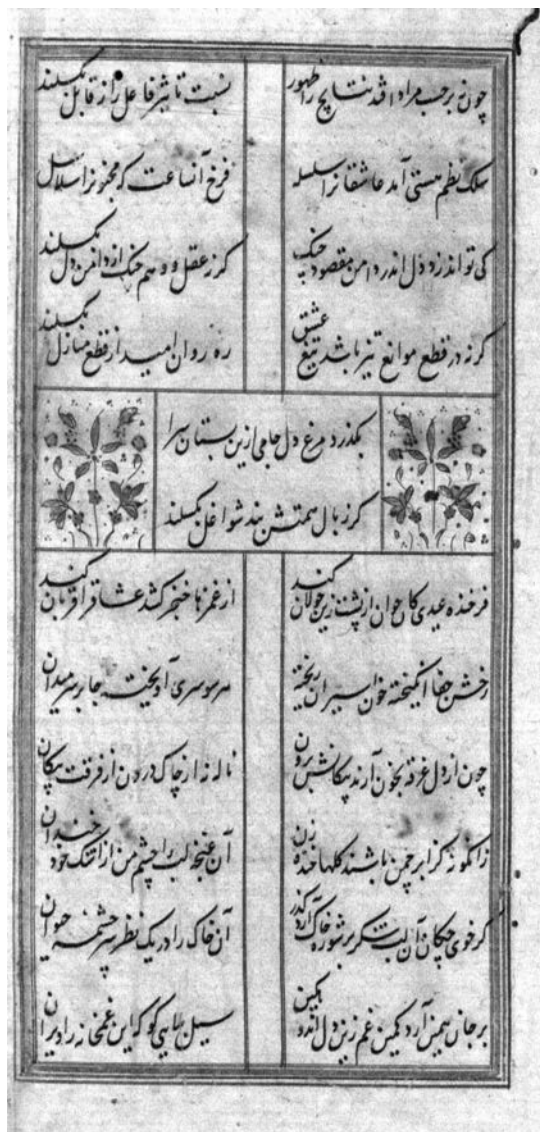 چون بر حسب مراد افتد نتایج را ظهور
نسبت تاثیر فاعل را ز قابل نگسلند
سلک نظم هستی آمد عاشقانرا سلسله
فرخ آنساعت که مجنونرا سلاسل
کی تواند زد دل اندر دامن مقصود چنگ
گر ز عقل و وهم چنگ از دامن دل نگسلند
گر نه در قطع موانع تیز باشد تیغ عشق
ره روان امید از قطع منازل نگسلند
بگذرد مرغ دل جامی ازین بستان سرا
گر ز بال همتش بند شواغل نگسلند
فرخنده عیدی کان جوان از پشت زین جولان کند
از غمزها خنجر کشد عشاق را قربان کند
رخش جفا انگیخته خون اسیران ریخته
هر سو سری آویخته جابر سر میدان
چون از دل غرقه بخون آرند پیکانش برون
ناله نه از چاک درون از فرقت پیکان
زانگونه کز ابر چمن باشند گلها خنده زن
آن غنچه لب را چشم من از اشک خود خندان
گر خوی چکان آن لب شکر بر شوره خاک آرد گذر
آن خاک را در یک نظر سرچشمه حیوان
بر جان همین آرد کمین غم زین دل
سیل بیایی کو که این غمخانه را ویران